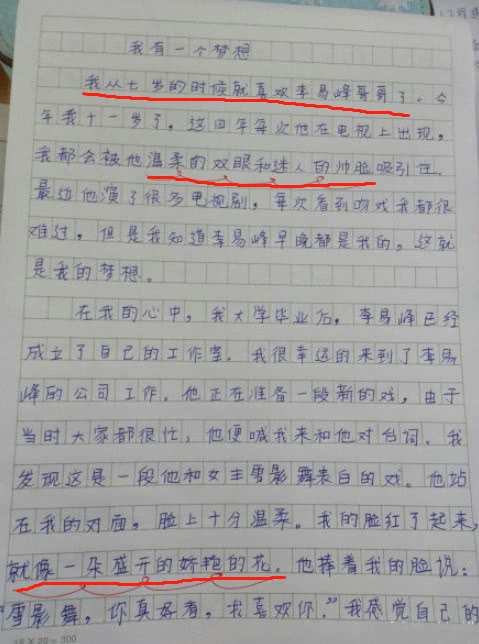 我有一个梦想
我从七岁的时候就喜欢李易峰哥哥了。今
年我十一岁了，这四年每次他在电视上出现，
我都会被他温柔的双眼和迷人的帅脸吸引住。
最近他演了很多电视剧，每次看到吻戏我都很
难过，但是我知道李易峰早晚都是我的，这就
是我的梦想。
在我的心中，我大学毕业后，李易峰已经
成立了自己的工作室，我很幸运的来到了李易
峰的公司工作，他正在准备一段新的戏，由于
当时大家都很忙，他便喊我来和他对台词，我
发现这是一段他和女主雪影舞表白的戏。他站
在我的对面，脸上十分温柔。我的脸红了起来，
就像一朵盛开的娇艳的花。他捧着我的脸说：
“雪影舞，你真好看，我喜欢你。”我感觉自己的
20=300